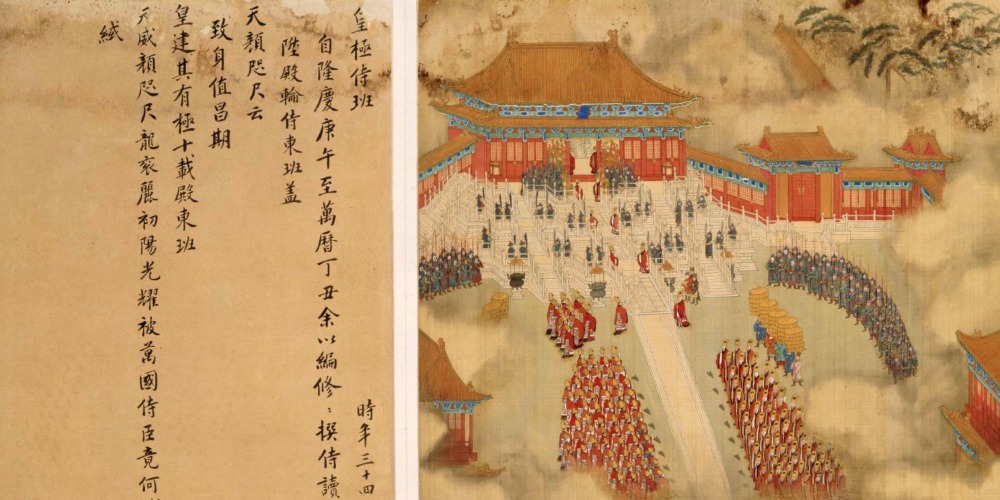 皇極侍班 時年三十四
自隆慶庚午至萬曆丁丑余以編修〻撰侍讀
陞殿輪侍東班蓋
天顏咫尺云
致身值昌期
皇建其有極十載殿東班
天威顏咫尺龍袞麗初陽光耀被萬國侍臣竟何